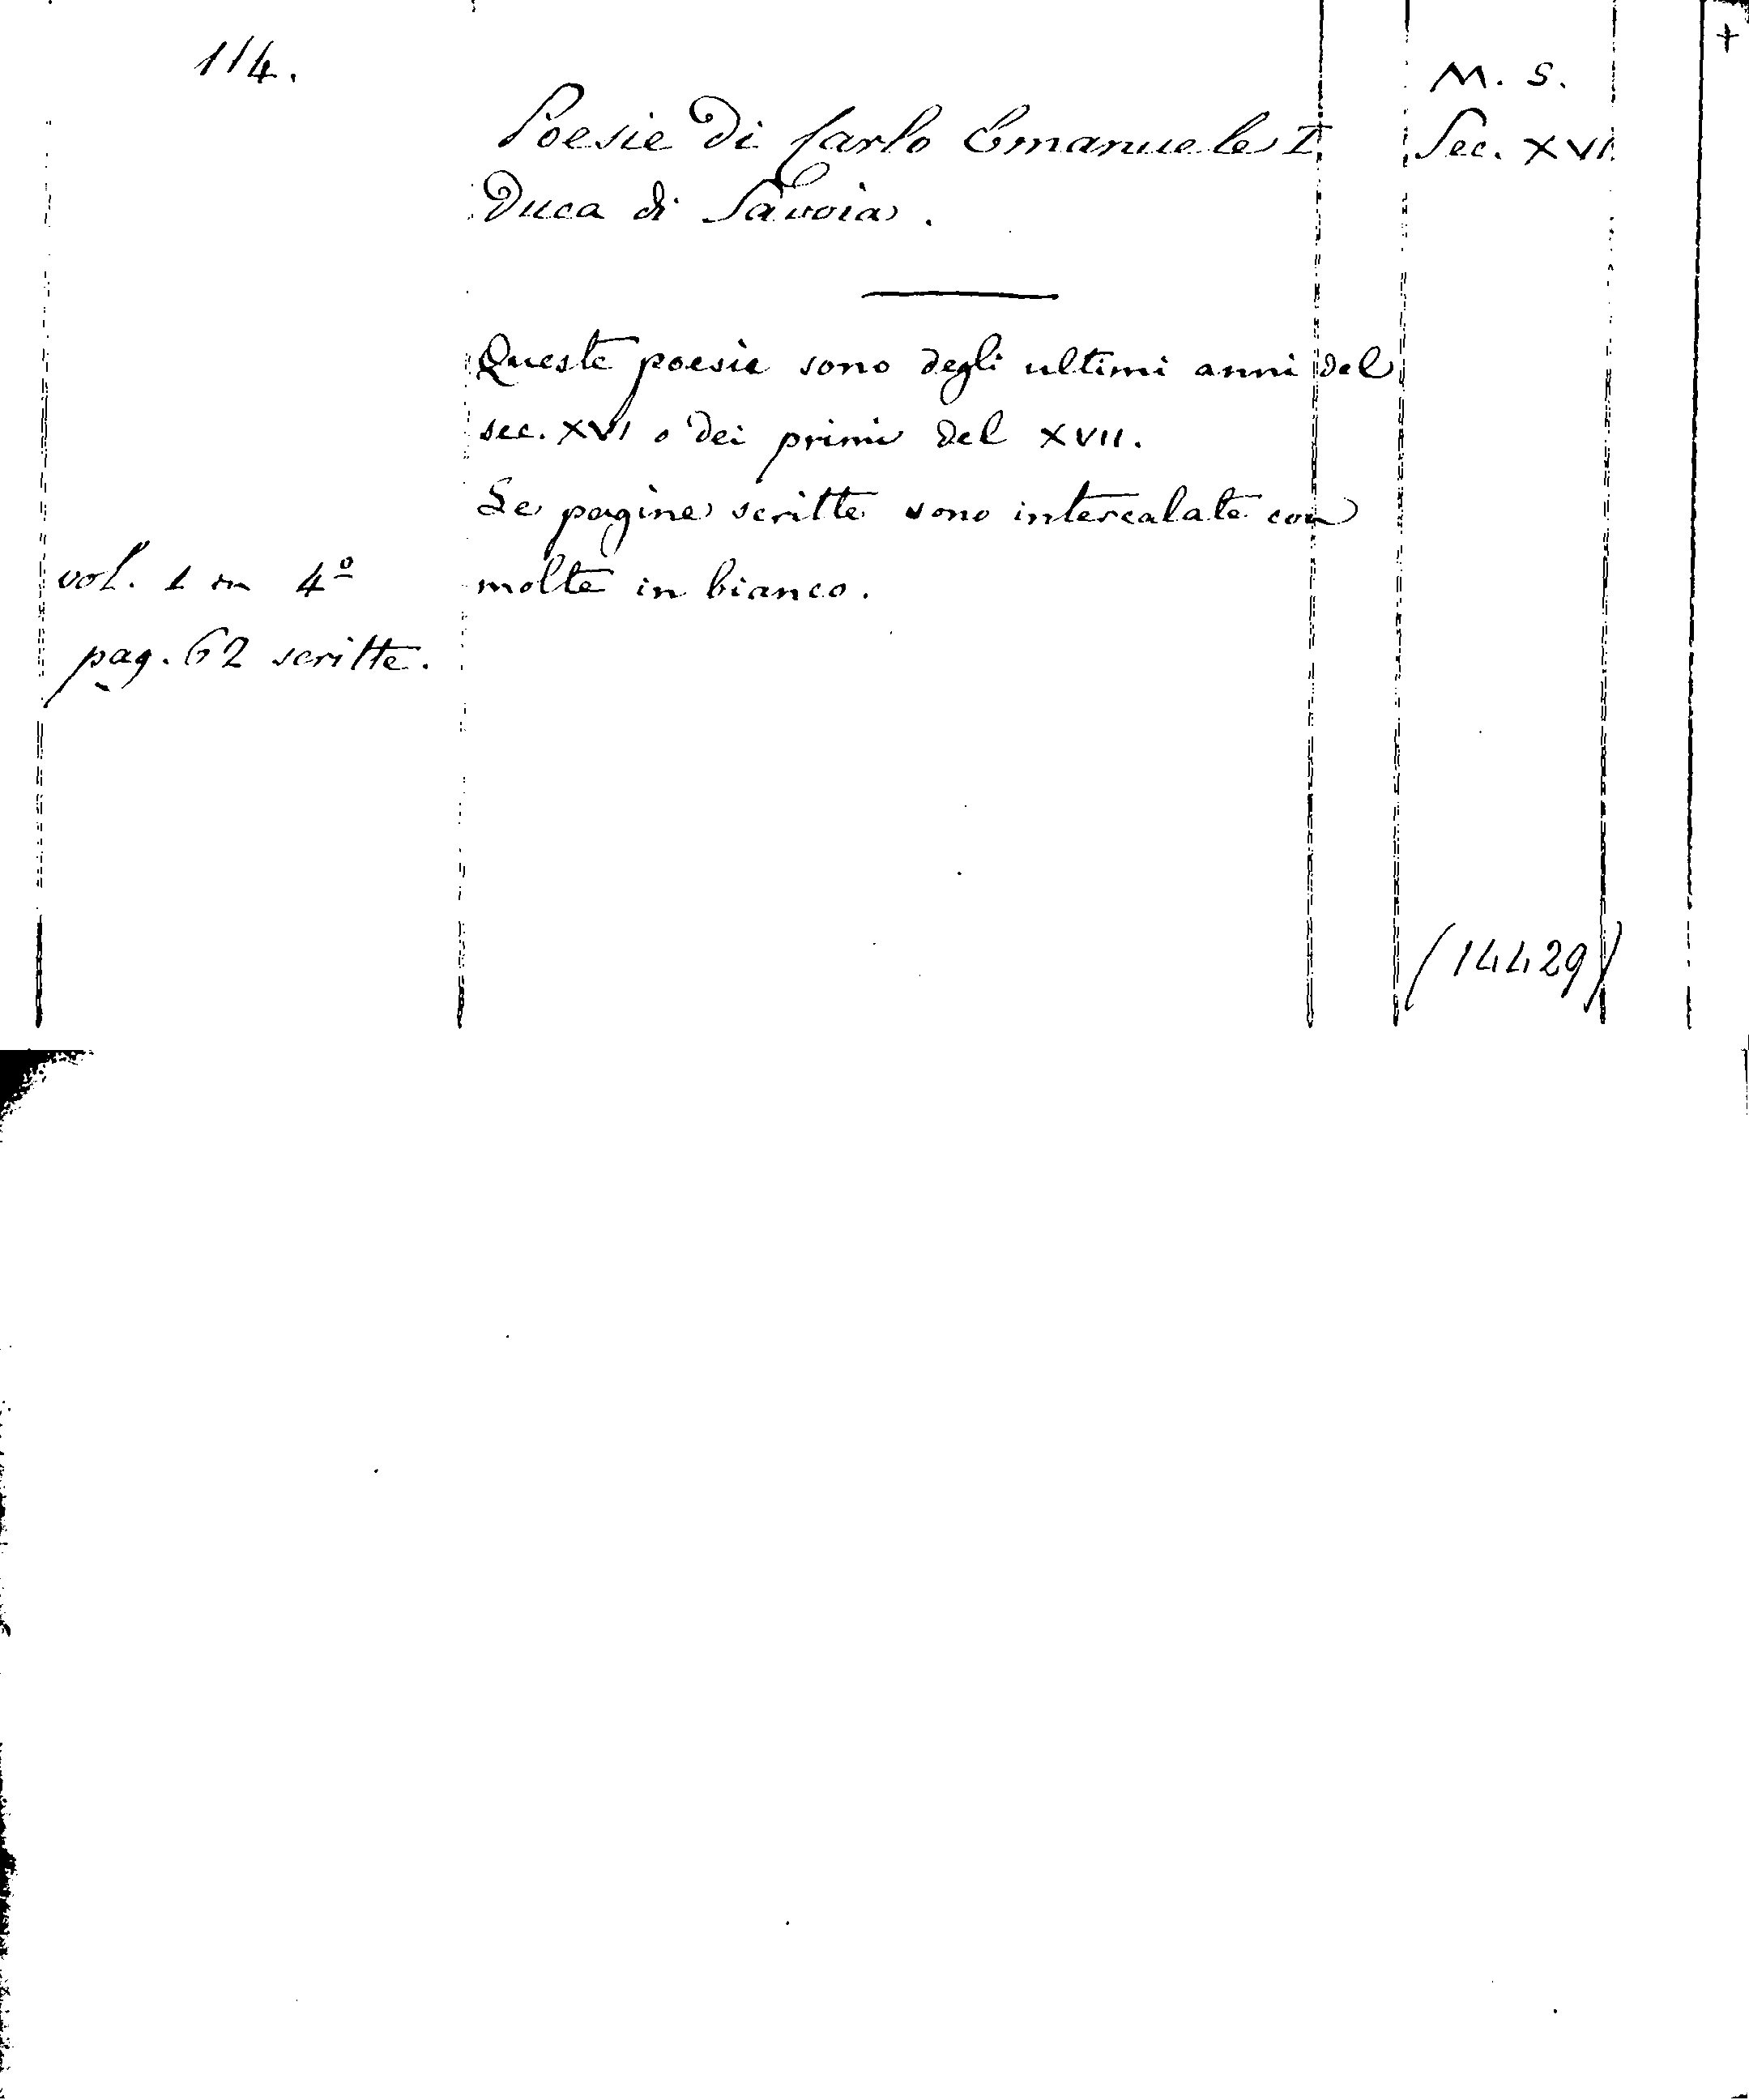 114.
M. S.
Poesie di Carlo Emanuele I
Sec. XVI
Duca di Savoia.
Queste poesie sono degli ultimi anni del
sec. XVI o dei primi del XVII.
Le pagine scritte sono intercalate con
molte in bianco.
vol. 1 in 4º
pag. 62 scritte.
(14429)